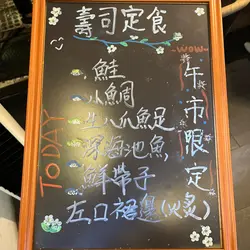 壽司定食
WOW
午市限定
TODAY
鮭
小鯛
生八爪魚足
深海池魚
鮮帶子
左口裙邊(火炙)